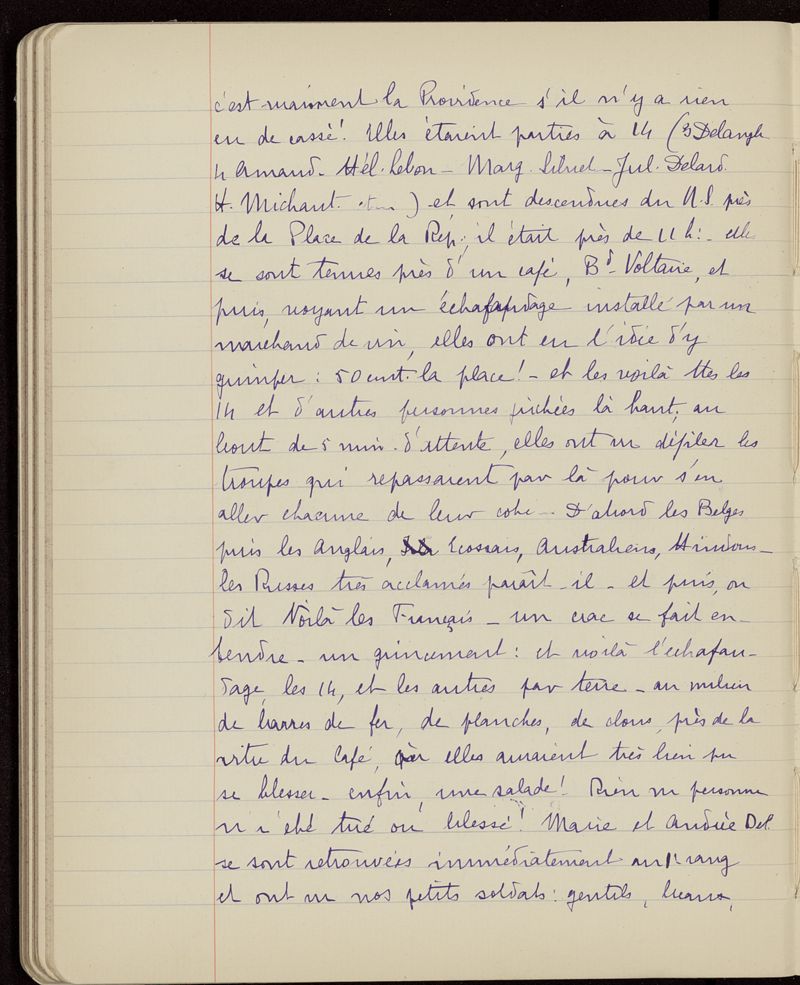 c'est vraiment la Providence s'il n'y a rien
eu de cassé! Elles étaient parties à 14 (3 Delangle
4 Armand - Hél. Lebon - Marg. - Jul. Delard
H. Michaut. ) et sont descendues du N.S. près
de la Place de la Rép.; il était près de 11 h: - elles
se sont tenues près d'un café, Bd. Voltaire, et
puis, voyant un échafaudage installé par un
marchand de vin, elles ont eu l'idée d'y
grimper: 50 cent. la place! - et les voilà ttes les
14 et d'autres personnes juchées là haut; au
bout de 5 min. d'attente, elles ont vu défiler les
troupes qui repassaient par là pour s'en
aller chacune de leur coté - D'abord les Belges
puis les Anglais, Ecossais, Australiens, Hindous -
les Russes très acclamés paraît-il - et puis, on
dit Voilà les Français - un crac se fait en-
tendre - un grincement: et voilà l'echafau-
dage, les 14, et les autres par terre - au milieu
de barres de fer, de planches, de clous, près de la
vitre du Café, où elles auraient très bien pu
se blesser - enfin, une salade! Rien ni personne
n'a été tué ou blessé! Marie et Andrée Del.
se sont retrouvées immédiatement au 1r rang
et ont vu nos petits soldats: gentils, braves,